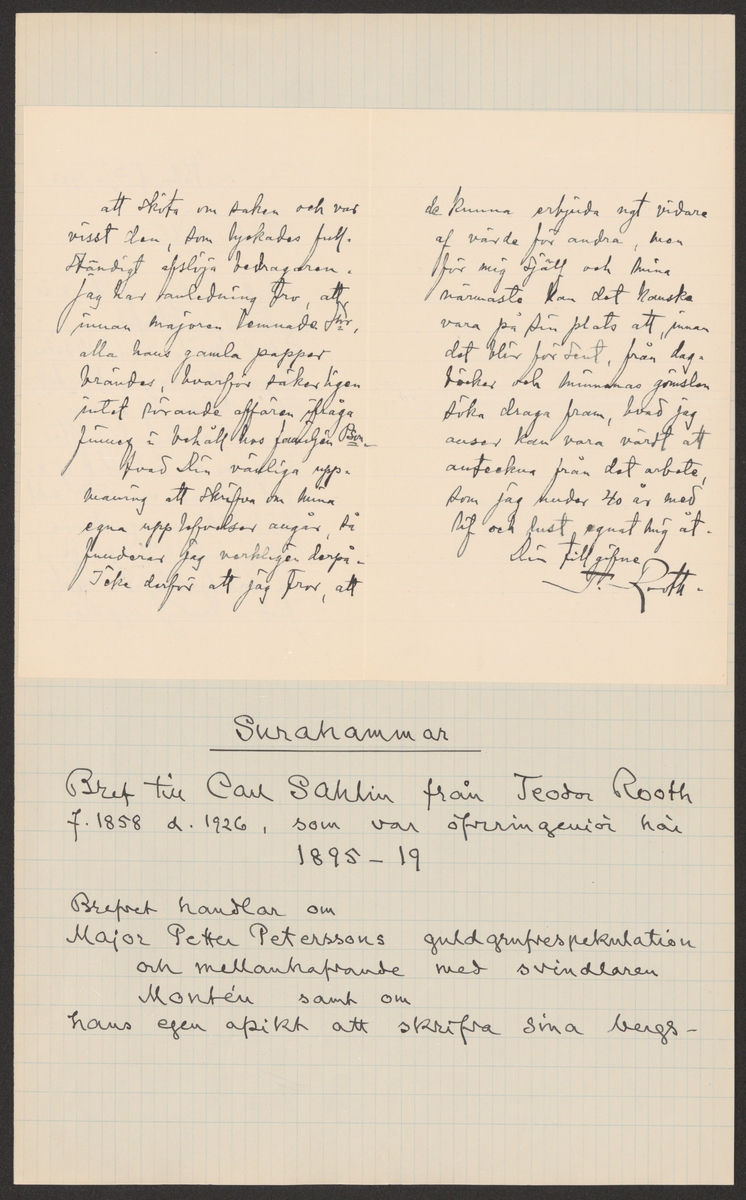 att sköta om saken och var
visst den, som lyckades full-
ständigt afslöja bedragaren.
Jag har anledning tro, att,
innan majoren lemnade Shr,
alla hans gamla papper
brändes, hvarför säkerligen
intet rörande affären ifråga
finnes i behåll hos familjen Psn.
Hvad Din vänliga upp-
maning att skrifva om mina
egna upplefvelser angår, så
funderar jag verkligen derpå.
Icke derför att jag tror, att
de kunna erbjuda ngt vidare
af värde för andra, men
för mig själf och mina
närmaste kan det kanske
vara på sin plats att, innan
det blir för sent, från dag-
böcker och minnenas gömslen
söka draga fram, hvad jag
anser kan vara värdt att
anteckna från det arbete,
som jag under 40 år med
lif och lust egnat mig åt.
Din tillgifne
T. Rooth.
Surahammar
Bref till Carl Sahlin från Teodor Rooth
f. 1858 d. 1926, som var öfveringeniör här
1895 - 19
Brefvet handlar om
Major Petter Peterssons guldgrufvespekulation
och mellanhafvande med svindlaren
Montén samt om
hans egen afsikt att skrifva sina bergs-